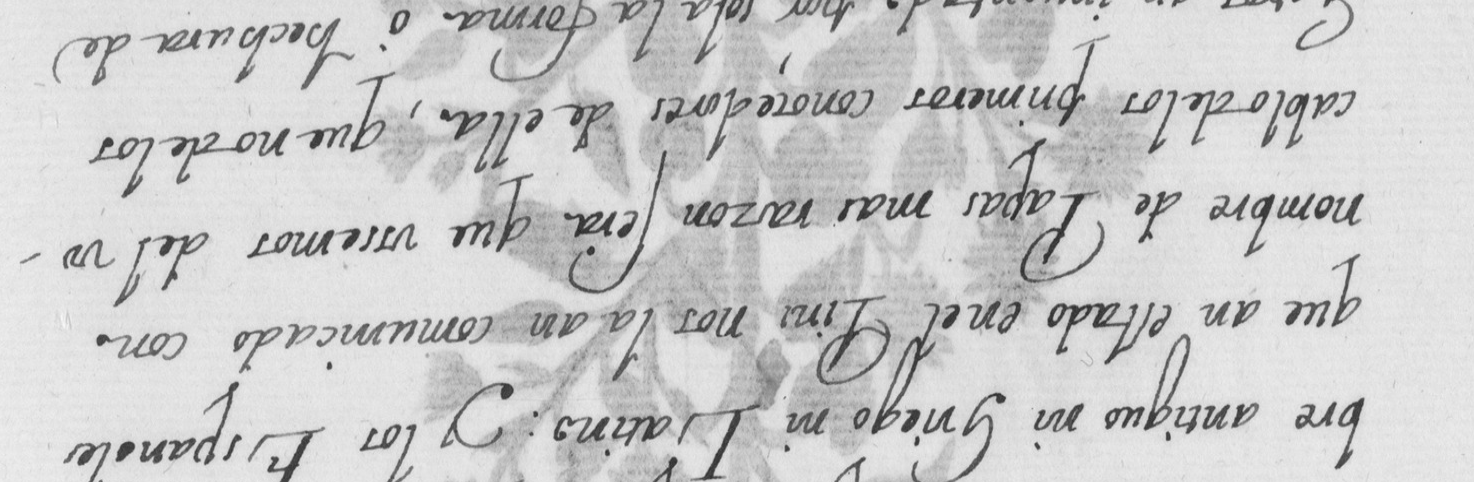 bre antiguo ni Griego ni Latino: Y los Españoles
que an estado en el Piru nos la an comunicado con
nombre de Papas mas razon sera que vsemos del vo-
cablo de los primeros conocedores de ella, que no de los
por sola la forma ò hechura de